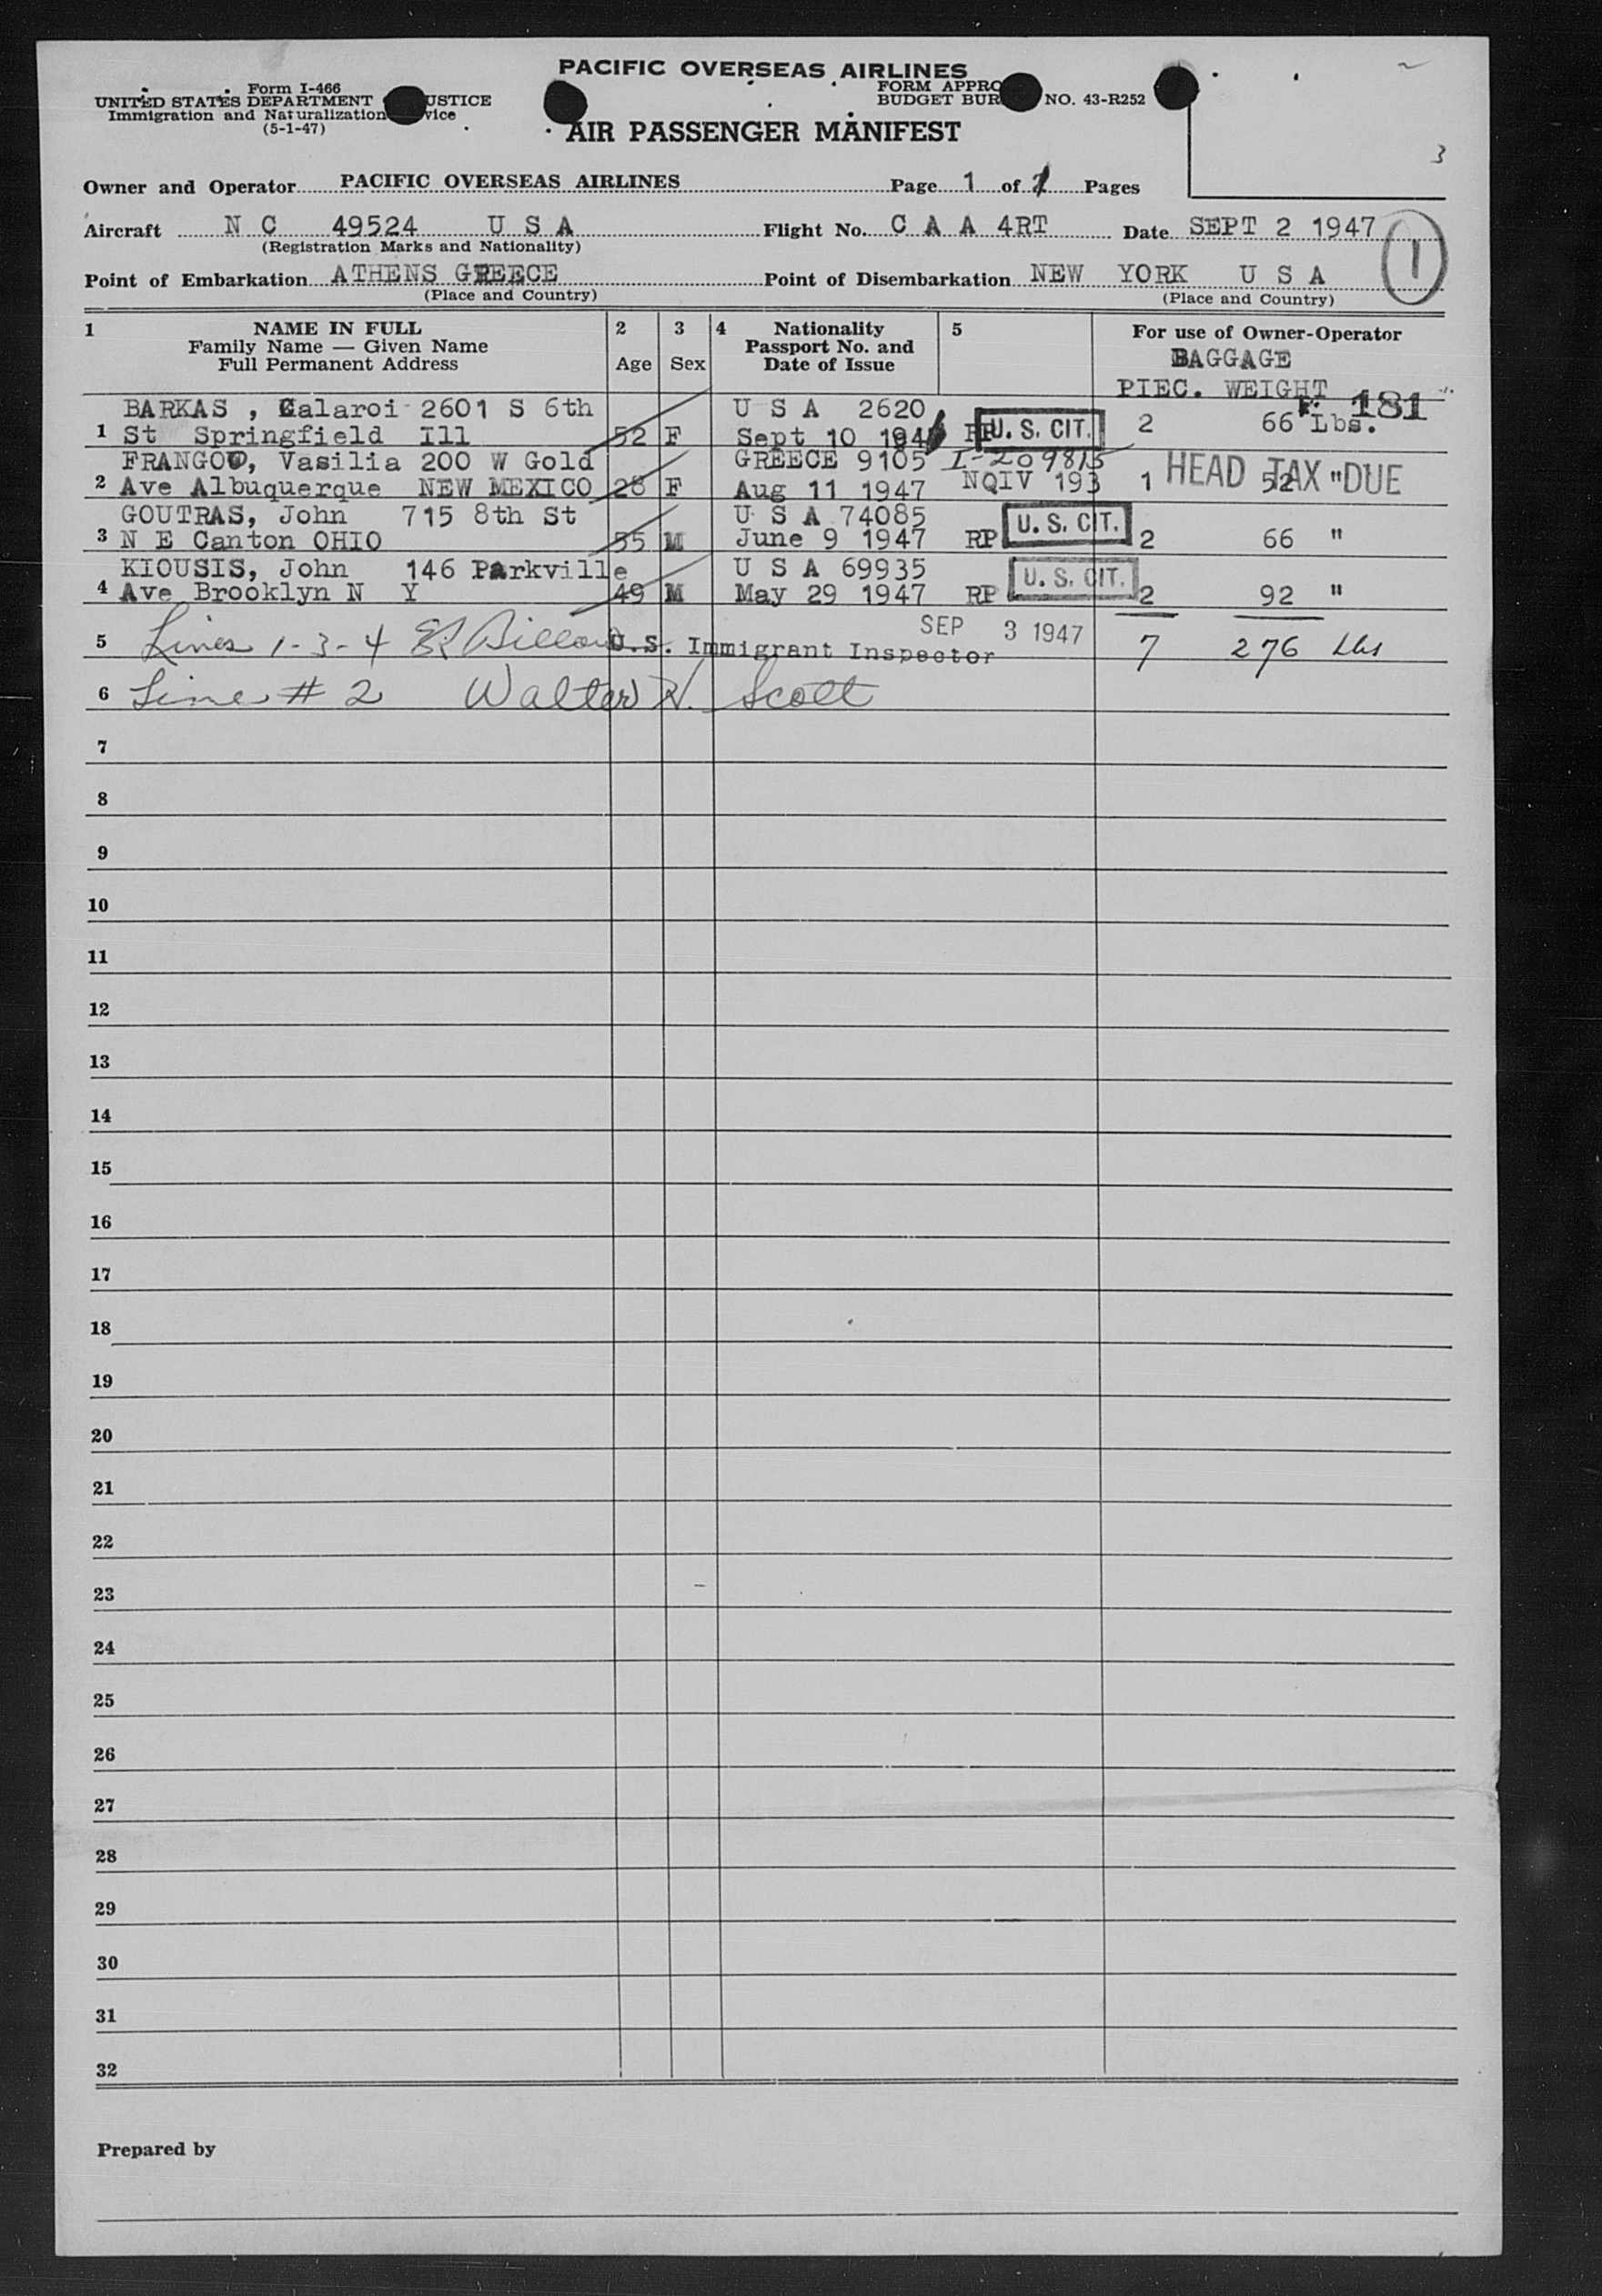 PACIFIC OVERSEAS AIRLINES
Form I-466
UNITED STATES DEPARTMENT USTICE
Immigration and Naturalization vice
(5-1-47)
FORM APPRO
BUDGET BUR NO. 43-R252
AIR PASSENGER MANIFEST
3
Owner and Operator PACIFIC OVERSEAS AIRLINES Page 1 of Pages
Aircraft N C 49524 U S A Flight No. C A A 4RT Date SEPT 2 1947
(Registration Marks and Nationality)
1
Point of Embarkation ATHENS GREECE Point of Disembarkation NEW YORK U S A
(Place and Country) (Place and Country)
1 NAME IN FULL 2 3 4 Nationality 5 For use of Owner-Operator
Family Name — Given Name Passport No. and BAGGAGE
Full Permanent Address Age Sex Date of Issue
PIEC. WEIGHT 181
BARKAS , Calaroi 2601 S 6th U S A 2620
1 St Springfield Ill 52 F Sept 10 U. S. CIT. 2 66 Lbs.
FRANGOU, Vasilia 200 W Gold GREECE 9105 I-209815
2 Ave Albuquerque NEW MEXICO 28 F Aug 11 1947 NQIV 193 1 HEAD TAX DUE 52 "
GOUTRAS, John 715 8th St U S A 74085
3 N E Canton OHIO 55 M June 9 1947 RP U. S. CIT. 2 66 "
KIOUSIS, John 146 Parkville U S A 69935
4 Ave Brooklyn N Y 49 M May 29 1947 RP U. S. CIT. 2 92 "
5 Lines 1-3-4 U.S. Immigrant Inspector SEP 3 1947 7 276 Lbs
6 Line # 2 Walter H. Scott
7
8
9
10
11
12
13
14
15
16
17
18
19
20
21
22
23
24
25
26
27
28
29
30
31
32
Prepared by